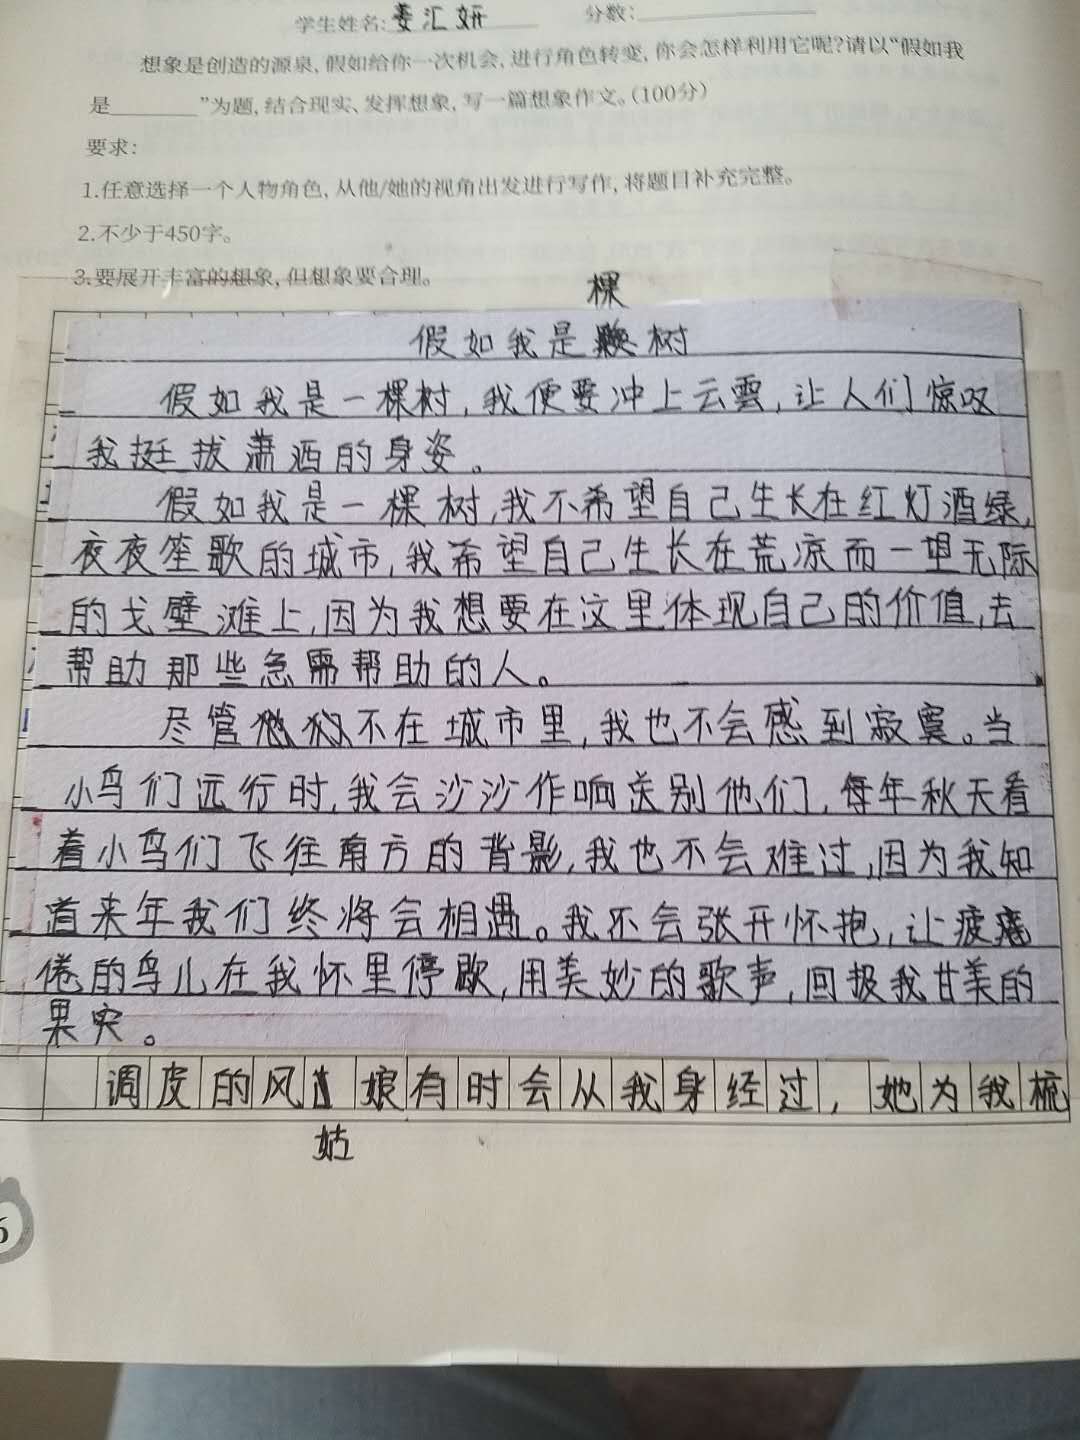 学生姓名:姜汇妍 分数:
想象是创造的源泉,假如给你一次机会,进行角色转变,你会怎样利用它呢?请以“假如我
是________”为题,结合现实、发挥想象,写一篇想象作文。(100分)
要求:
1.任意选择一个人物角色,从他/她的视角出发进行写作,将题目补充完整。
2.不少于450字。
3.要展开丰富的想象,但想象要合理。
棵
假如我是树
假如我是一棵树,我便要冲上云雲,让人们惊叹
我挺拔萧洒的身姿。
假如我是一棵树,我不希望自己生长在红灯酒绿,
夜夜笙歌的城市,我希望自己生长在荒凉而一望无际
的戈壁滩上,因为我想要在这里体现自己的价值,去
帮助那些急需帮助的人。
尽管不在城市里,我也不会感到寂寞。当
小鸟们远行时,我会沙沙作响送别他们,每年秋天看
着小鸟们飞往南方的背影,我也不会难过,因为我知
道来年我们终将会相遇。我还会张开怀抱,让疲
倦的鸟儿在我怀里停歇,用美妙的歌声,回报我甘美的
果实。
调皮的风娘有时会从我身经过,她为我梳
姑
6